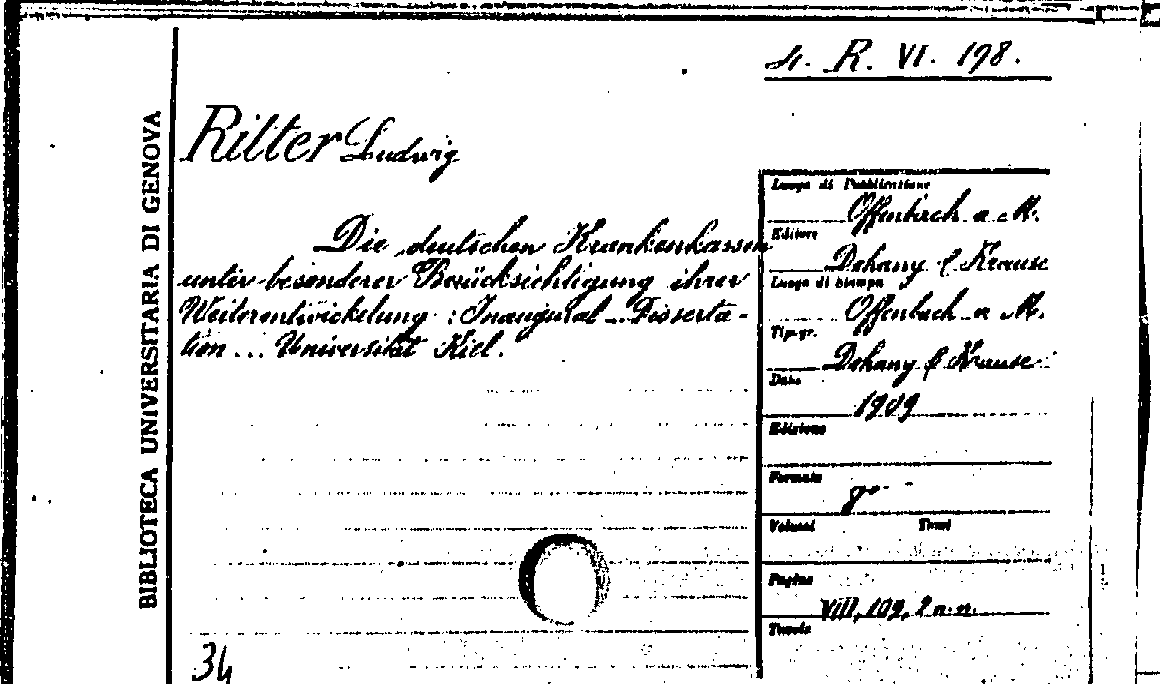 4. R. VI. 198.
BIBLIOTECA UNIVERSITARIA DI GENOVA
Ritter Ludwig
Die deutschen Krankenkassen
unter besonderer Berücksichtigung ihrer
Weiterentwickelung : Inaugural - Disserta-
tion ... Universität Kiel.
34
Luogo di Pubblicazione
Offenbach a. M.
Editore
Dohany & Krause
Luogo di stampa
Offenbach a. M.
Tipogr.
Dohany & Krause
Data
1909
Edizione
Formato
8°
Volumi Tomi
Pagine
VIII, 109, 2 n.n.
Tavole